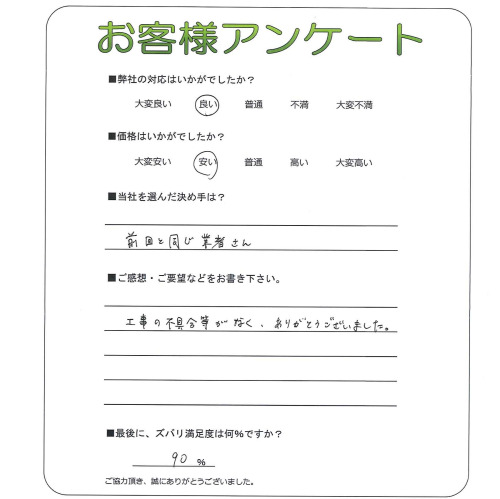 お客様アンケート
■弊社の対応はいかがでしたか？
大変良い 良い 普通 不満 大変不満
■価格はいかがでしたか？
大変安い 安い 普通 高い 大変高い
■当社を選んだ決め手は？
前回と同じ業者さん
■ご感想・ご要望などをお書き下さい。
工事の不具合等がなく、ありがとうございました。
■最後に、ズバリ満足度は何％ですか？
90 %
ご協力頂き、誠にありがとうございました。